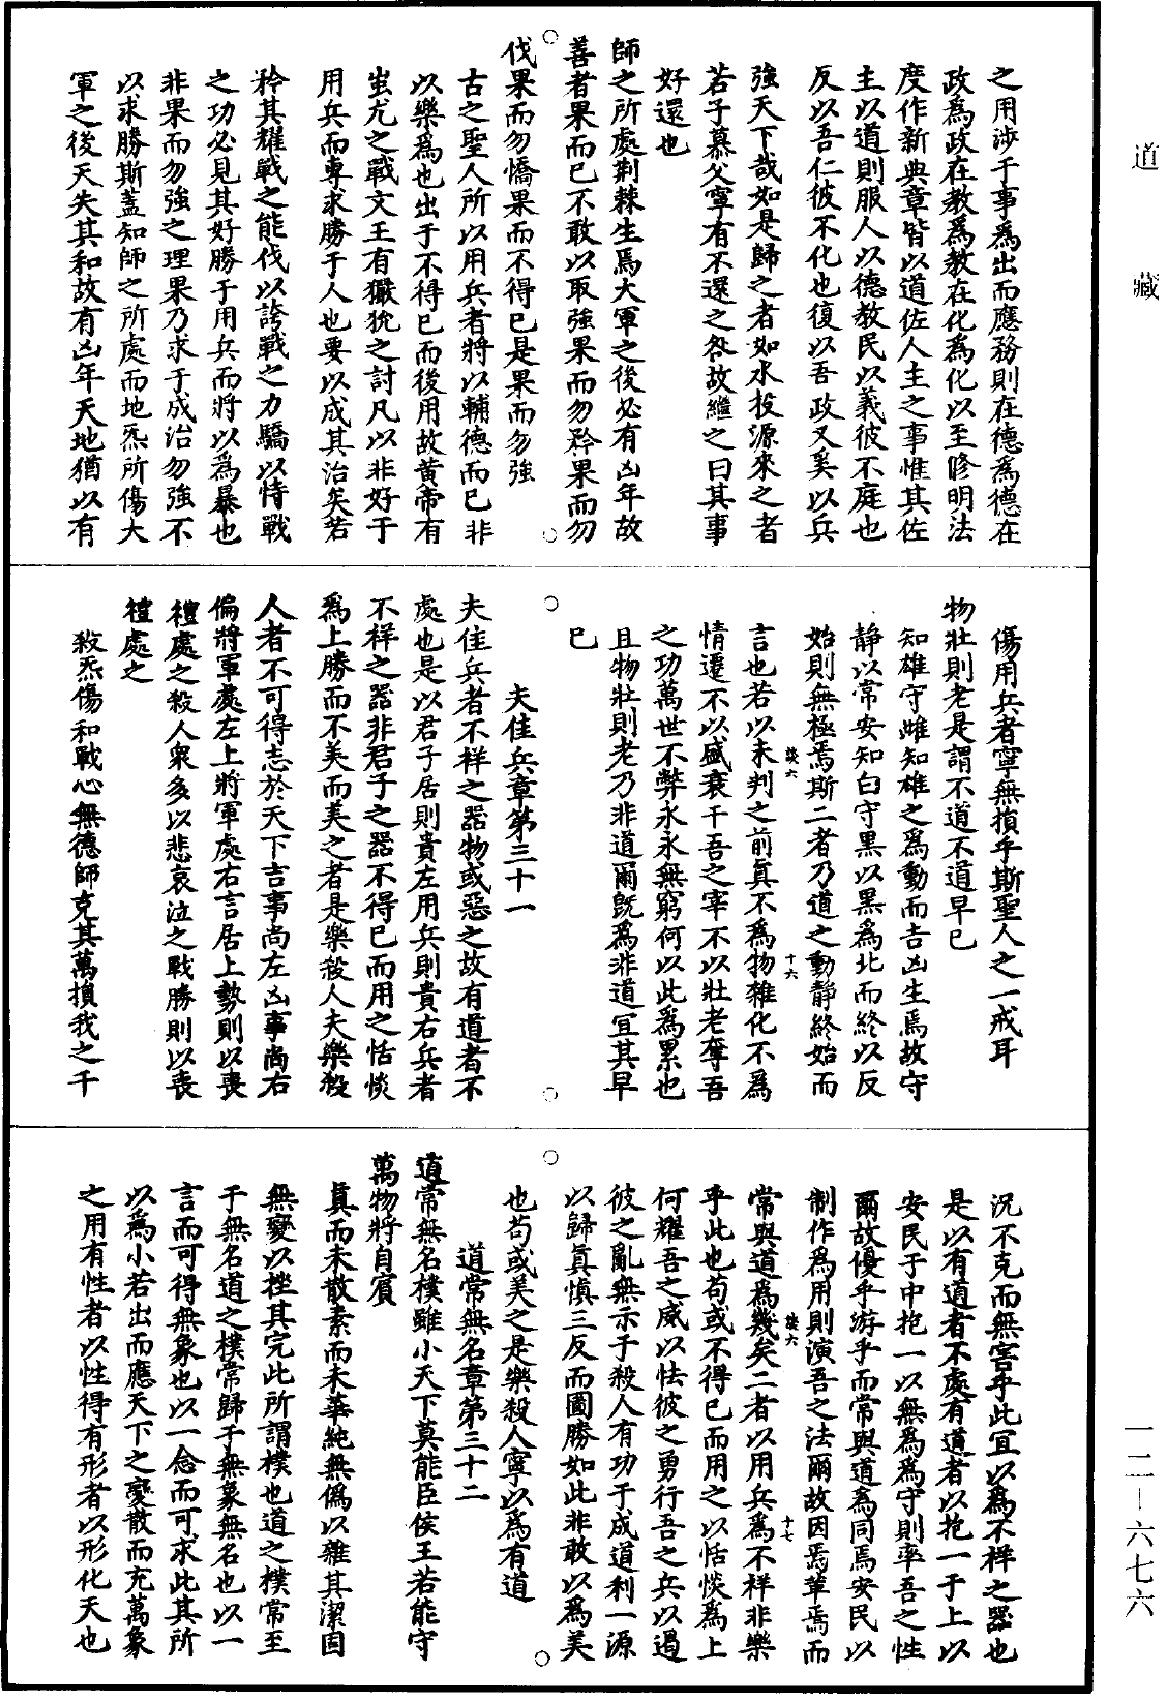 道藏
之用涉于事為出而應務則在德為德在
政為政在教為教在化為化以至修明法
度作新典章皆以道佐人主之事惟其佐
主以道則服人以德教民以義彼不庭也
反以吾仁彼不化也復以吾政又奚以兵
強天下哉如是歸之者如水投源來之者
若子慕父寧有不還之咎故繼之曰其事
好還也
師之所處荆棘生焉大軍之後必有凶年故
善者果而已不敢以取強果而勿矜果而勿
伐果而勿憍果而不得已是果而勿強
古之聖人所以用兵者將以輔德而已非
以樂為也出于不得已而後用故黃帝有
蚩尤之戰文王有玁狁之討凡以非好于
用兵而專求勝于人也要以成其治矣若
矜其耀戰之能伐以誇戰之力驕以恃戰
之功必見其好勝于用兵而將以為暴也
非果而勿強之理果乃求于成治勿強不
以求勝斯蓋知師之所處而地炁所傷大
軍之後天失其和故有凶年天地猶以有
傷用兵者寧無損乎斯聖人之一戒耳
物壯則老是謂不道不道早已
知雄守雌知雄之為動而吉凶生焉故守
靜以常安知白守黑以黑為北而終以反
始則無極焉斯二者乃道之動靜終始而
言也若以未判之前真不為物雜化不為
情遷不以盛衰干吾之宰不以壯老奪吾
之功萬世不弊永永無窮何以此為累也
且物壯則老乃非道爾旣為非道宜其早
已
夫佳兵章第三十一
夫佳兵者不祥之器物或惡之故有道者不
處也是以君子居則貴左用兵則貴右兵者
不祥之器非君子之器不得已而用之恬惔
為上勝而不美而美之者是樂殺人夫樂殺
人者不可得志於天下吉事尚左凶事尚右
偏將軍處左上將軍處右言居上勢則以喪
禮處之殺人衆多以悲哀泣之戰勝則以喪
禮處之
殺炁傷和戰心無德師克其萬損我之千
況不克而無害乎此宜以為不祥之器也
是以有道者不處有道者以抱一于上以
安民于中抱一以無為為守則率吾之性
爾故優乎游乎而常與道為同焉安民以
制作為用則演吾之法爾故因焉革焉而
常與道為幾矣二者以用兵為不祥非樂
乎此也苟或不得已而用之以恬惔為上
何耀吾之威以怯彼之勇行吾之兵以遏
彼之亂無示于殺人有功于成道利一源
以歸真慎三反而圖勝如此非敢以為美
也苟或美之是樂殺人寧以為有道
道常無名章第三十二
道常無名樸雖小天下莫能臣侯王若能守
萬物將自賓
真而未散素而未華純無僞以雜其潔固
無變以挫其完此所謂樸也道之樸常至
于無名道之樸常歸于無象無名也以一
言而可得無象也以一念而可求此其所
以為小若出而應天下之變散而充萬象
之用有性者以性得有形者以形化天也
一二—六七六